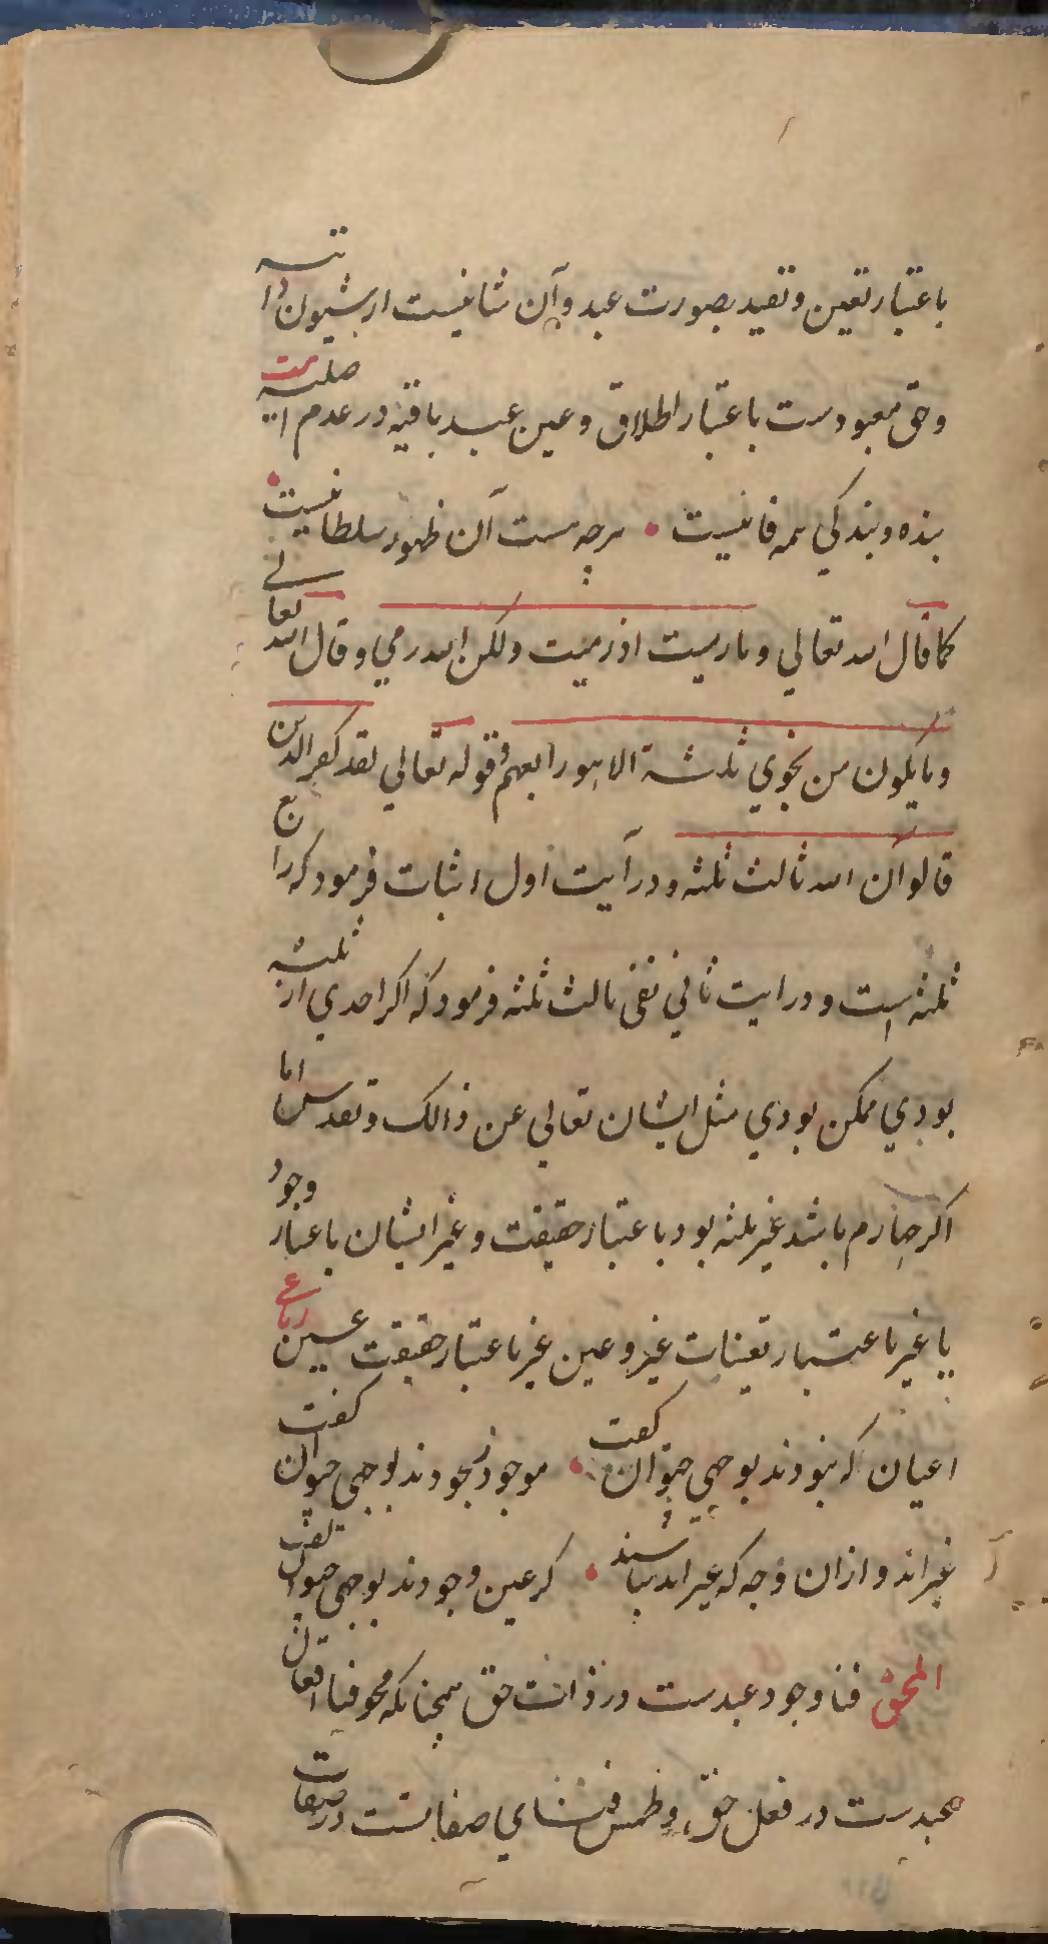 باعتبار تعین و تقید بصورت عبد و آن شانیست از شیون ذاتیه
و حق معبودست باعتبار اطلاق و عین عبد باقیه در عدم اصلیه بیت
بنده و بندکی همه فانیست • هرچه هست آن ظهور سلطانیست •
کما قال الله تعالی و ما رمیت اذ رمیت ولکن الله رمی و قال الله تعالی
و ما یکون من نجوی ثلثة الا هو رابعهم و قوله تعالی لقد کفر الذین
قالوا ان الله ثالث ثلثه و در آیت اول اثبات فرمود که رابع
ثلثه است و در ایت ثانی نفی ثالث ثلثه فرمود که اکر احدی از ثلثه
بودی ممکن بودی مثل ایشان تعالی عن ذالک و تقدس اما
اکر چهارم باشد غیر ثلثه بود باعتبار حقیقت و غیر ایشان باعتبار وجود
یا غیر باعتبار تعینات غیر و عین غیر باعتبار حقیقت عین رباعی
اعیان که نبودند بوجهی جتوان کفت • موجود نبودند بوجهی جتوان کفت
غیراند و ازان وجه که غیراند نباشند • کر عین وجودند بوجهی جتوان کفت
المحق فنا وجود عبدست در ذات حق همجنانکه محو فنا افعال
عبدست در فعل حق و طمس فنای صفاتست در صفات